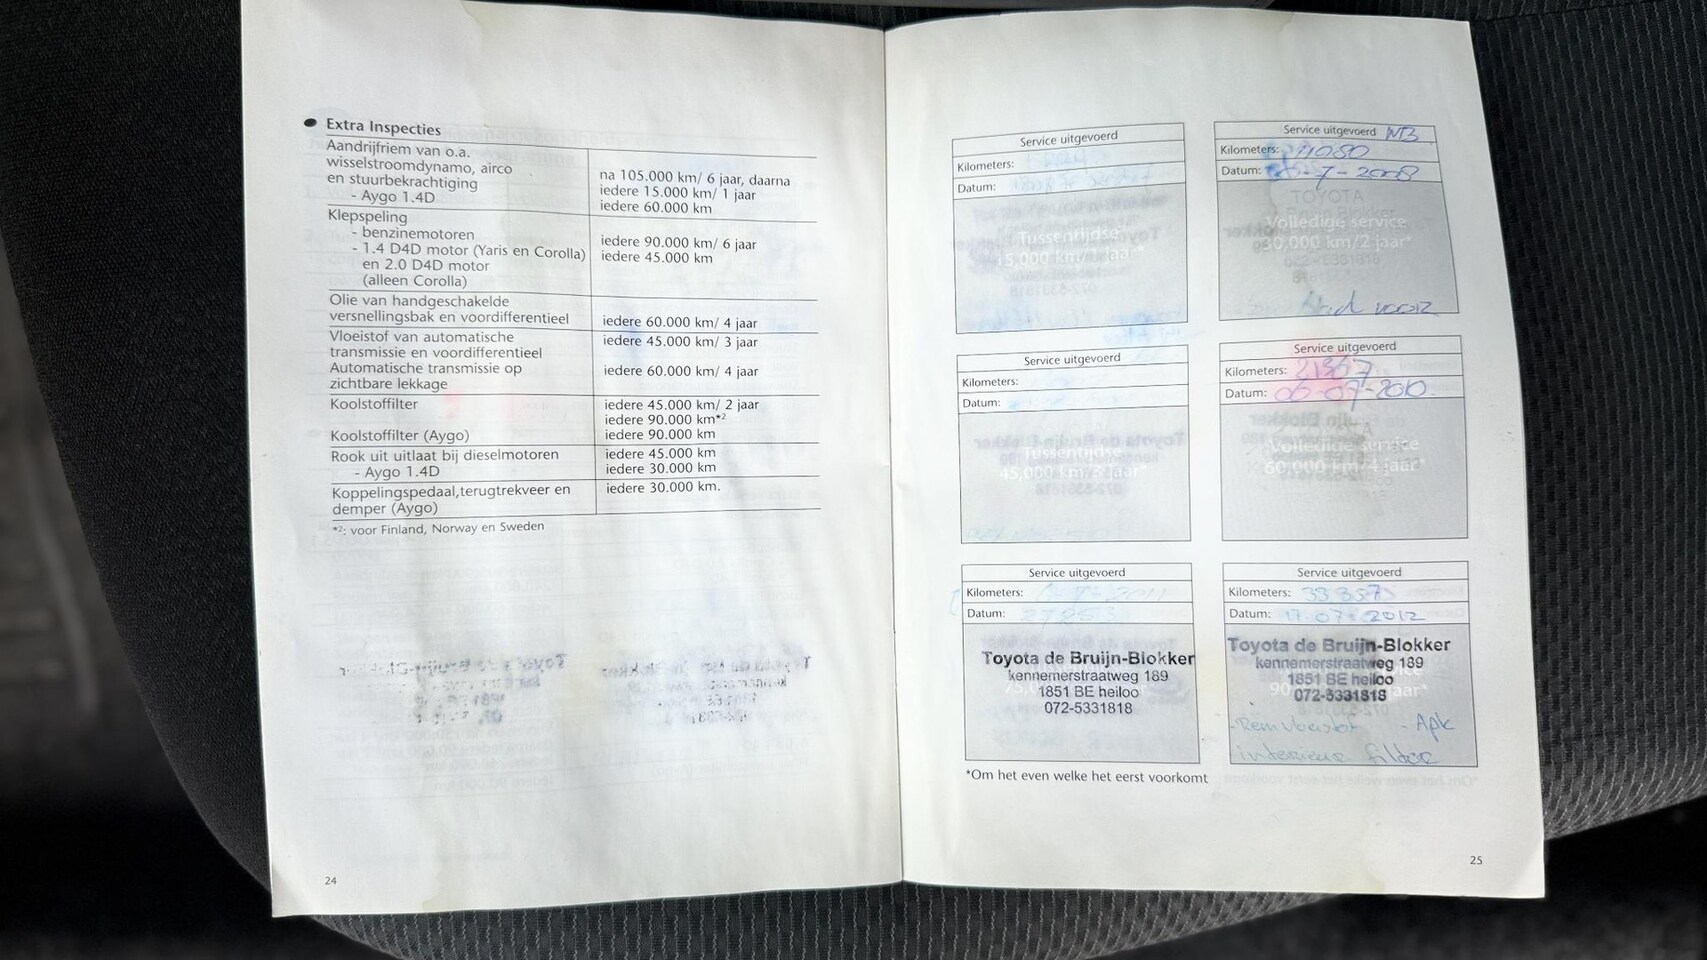 Extra Inspecties
Aandrijfriem van o.a.
wisselstroomdynamo, airco
en stuurbekrachtiging
- Aygo 1.4D
na 105.000 km/ 6 jaar, daarna
iedere 15.000 km/ 1 jaar
iedere 60.000 km
Klepspeling
- benzinemotoren
- 1.4 D4D motor (Yaris en Corolla)
en 2.0 D4D motor
(alleen Corolla)
iedere 90.000 km/ 6 jaar
iedere 45.000 km
Olie van handgeschakelde
versnellingsbak en voordifferentieel
iedere 60.000 km/ 4 jaar
Vloeistof van automatische
transmissie en voordifferentieel
Automatische transmissie op
zichtbare lekkage
iedere 45.000 km/ 3 jaar
iedere 60.000 km/ 4 jaar
Koolstoffilter
Koolstoffilter (Aygo)
iedere 45.000 km/ 2 jaar
iedere 90.000 km*2
iedere 90.000 km
Rook uit uitlaat bij dieselmotoren
- Aygo 1.4D
iedere 45.000 km
iedere 30.000 km
Koppelingspedaal,terugtrekveer en
demper (Aygo)
iedere 30.000 km.
*2: voor Finland, Norway en Sweden
24
Service uitgevoerd
Kilometers:
Datum:
Tussentijdse
15,000 km/1 jaar*
Service uitgevoerd
Kilometers:
Datum: -7-2008
TOYOTA
Volledige service
30,000 km/2 jaar*
Service uitgevoerd
Kilometers:
Datum:
Tussentijdse
45,000 km/3 jaar*
Service uitgevoerd
Kilometers: 21367
Datum: 06-07-2010.
Volledige service
60,000 km/4 jaar*
Service uitgevoerd
Kilometers: 2011
Datum: 27853
Toyota de Bruijn-Blokker
kennemerstraatweg 189
1851 BE heiloo
072-5331818
Service uitgevoerd
Kilometers: 33357
Datum: 17-07-2012
Toyota de Bruijn-Blokker
kennemerstraatweg 189
1851 BE heiloo
072-5331818
- Remvloeistof - Apk
- interieur filter
*Om het even welke het eerst voorkomt
25